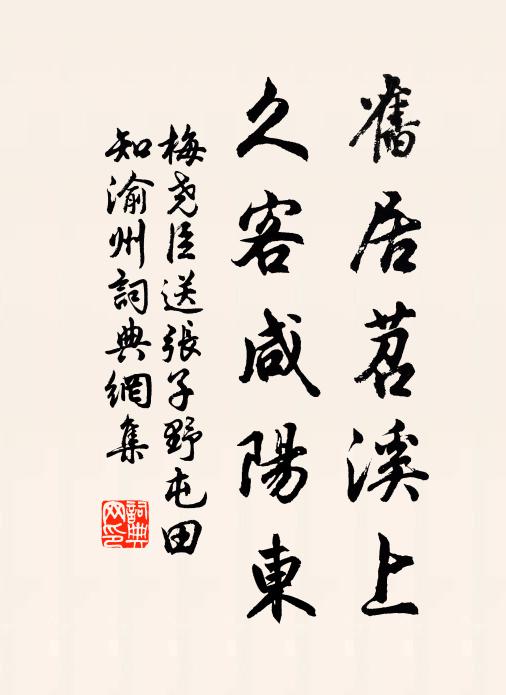 舊居苕溪上
久客咸陽東
梅堯臣送張子野屯田
知渝州詞典網集
詞典网印